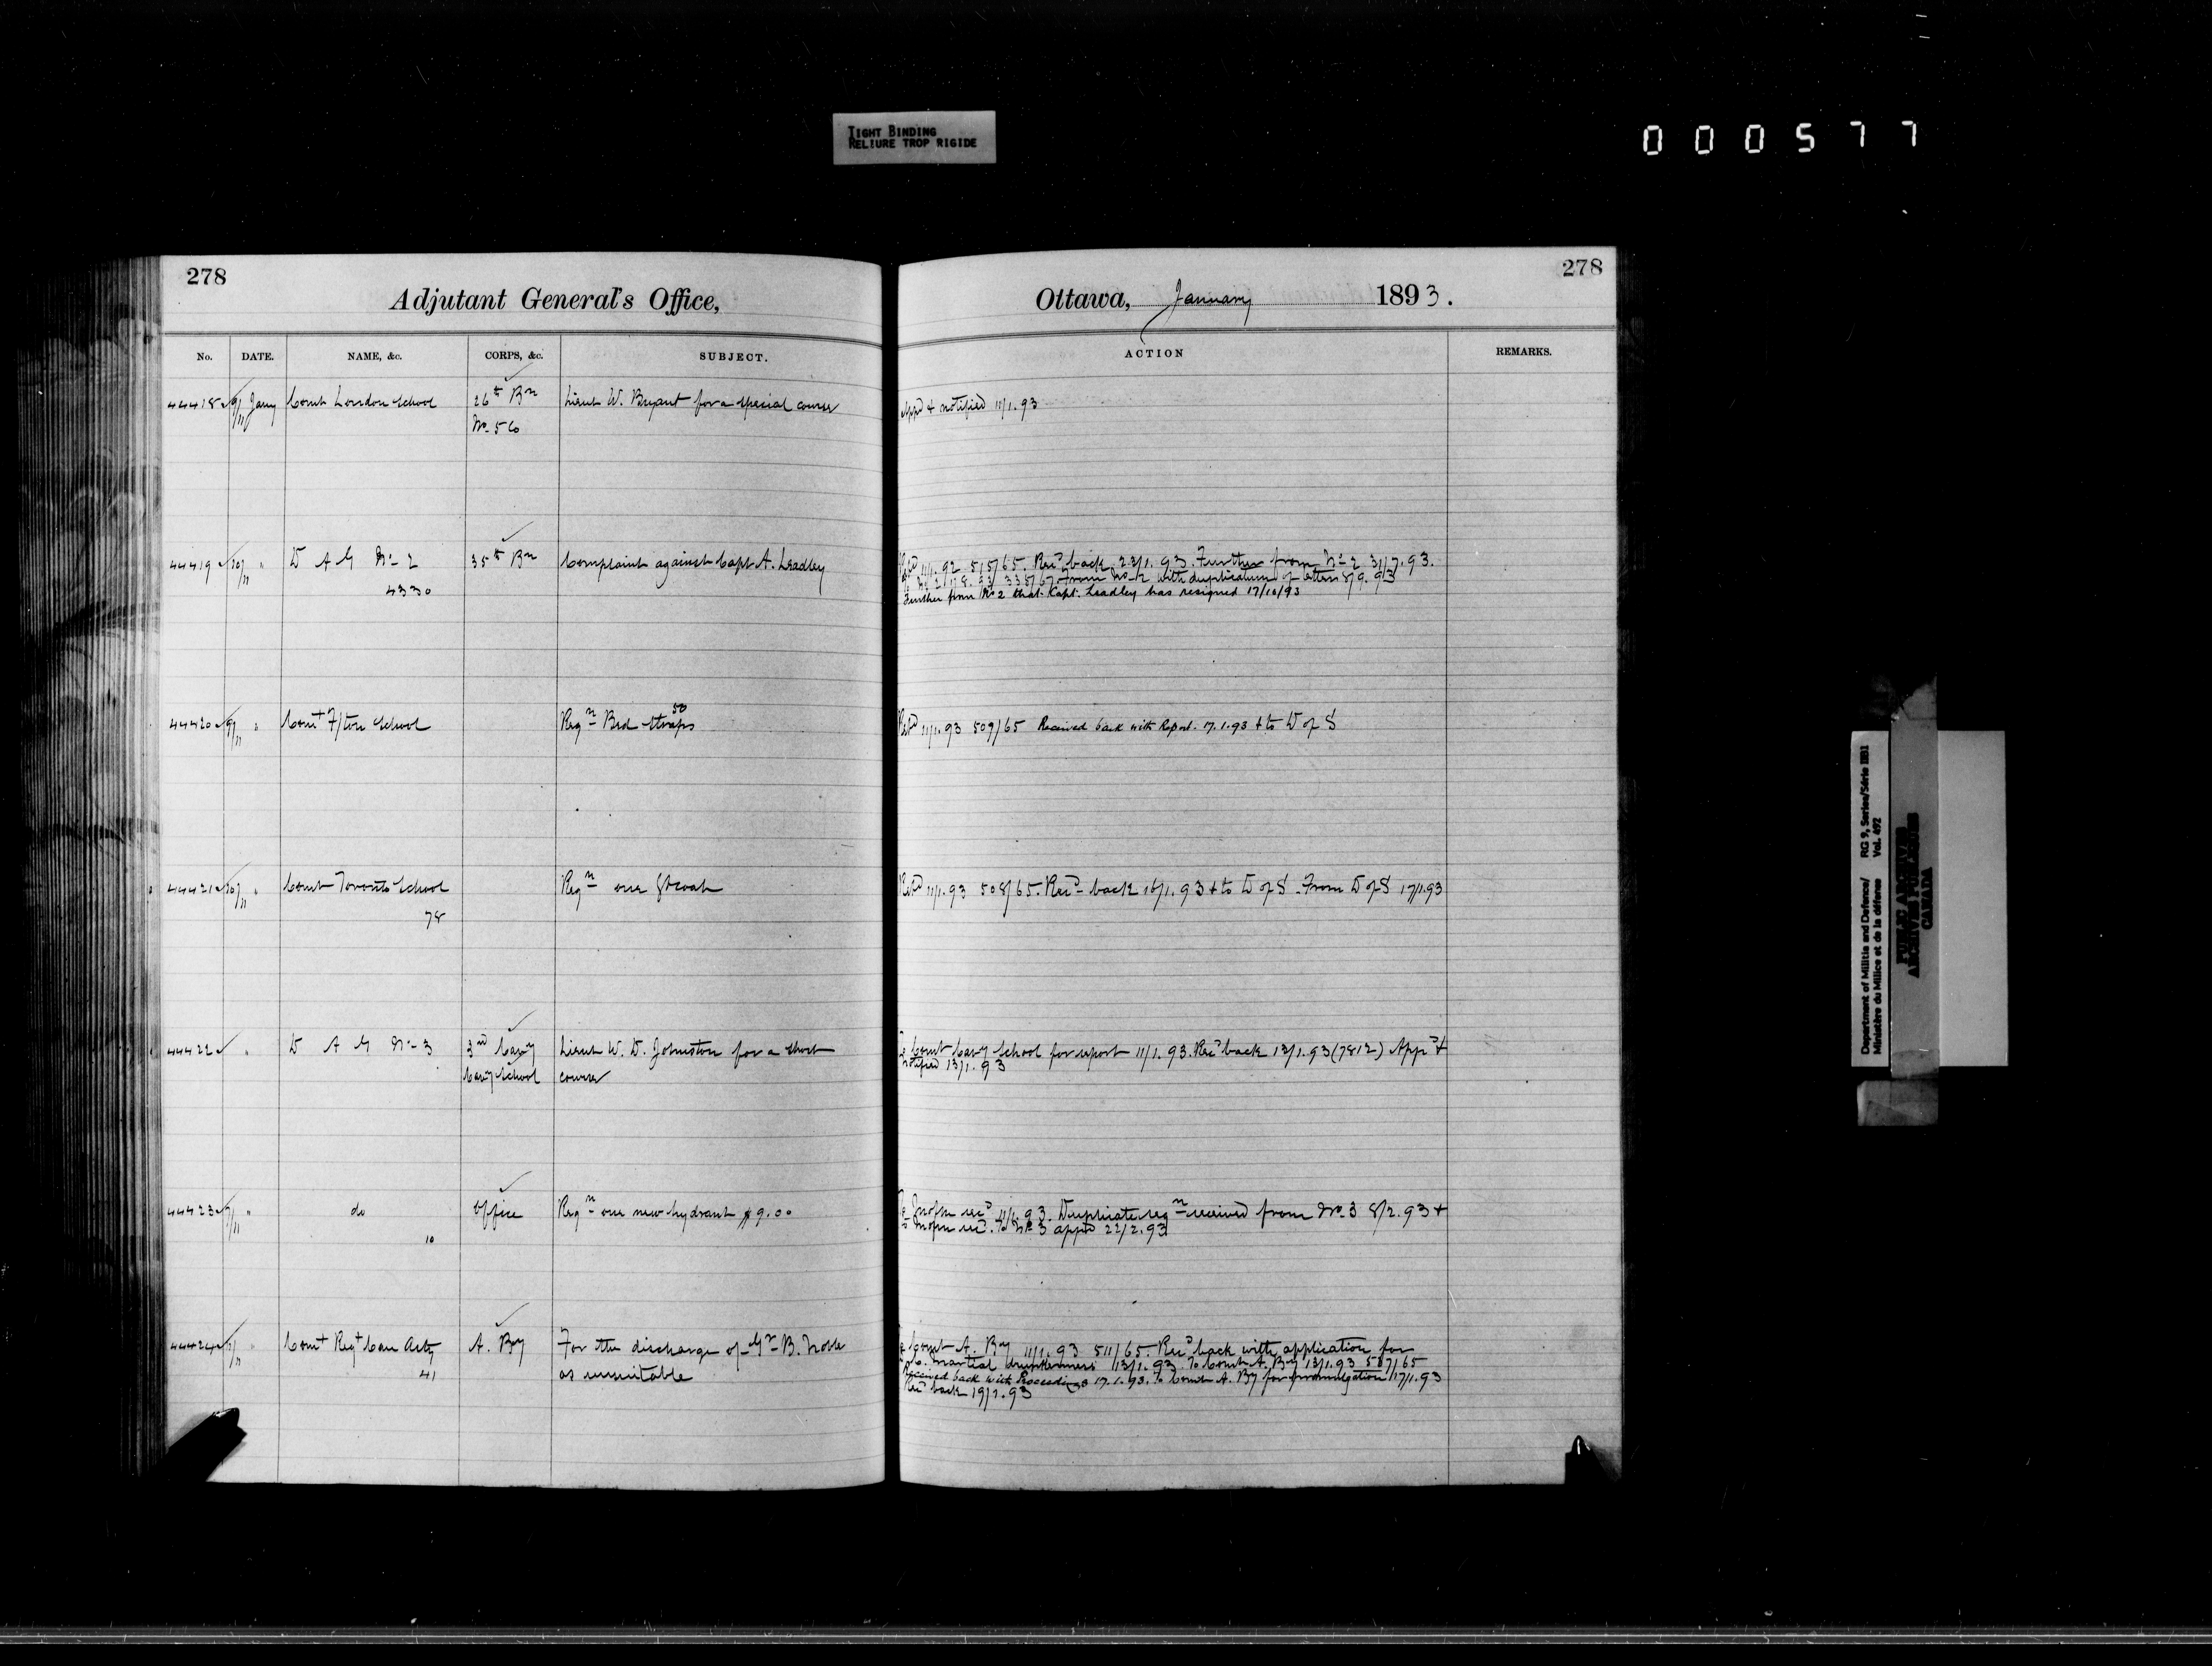 TIGHT BINDING
RELIURE TROP RIGIDE
000577
278
Adjutant General's Office,
No. DATE. NAME, &c. CORPS, &c. SUBJECT.
44418 9/11 Jany Comt London School 26th Bn Lieut W. Bryant for a special course
No 56
44419 10/11 " D A G No 2 35th Bn Complaint against Capt A. Leadley
4330
44420 9/11 " Comt F/ton School Reqn Bed straps 50
44421 10/11 " Comt Toronto School Reqn one Gt coat
78
44422 " D A G No 3 3rd Cavy Lieut W. D. Johnston for a short
Cavy School course
44423 9/11 " do Office Reqn one new hydrant $9.00
10
44424 " Comt Regt Can Arty A. By For the discharge of Gr B. Noble
41 as unsuitable
278
Ottawa, January 1893.
ACTION REMARKS.
Appd & notified 11/1.93
Retd 11/1.92 515/65. Recd back 23/1.93 Further from No 2 31/7.93.
335/67. From No 2 with duplicatum of letter 8/9.93
Further from No 2 that Capt. Leadley has resigned 17/10/93
Retd 11/1.93 509/65 Received back with Report. 17.1.93 & to D of S
Retd 11/1.93 508/65. Recd back 16/1.93 & to D of S. From D of S 17/1.93
Comt Cavy School for report 11/1.93. Recd back 13/1.93 (7812) Appd &
notified 13/1.93
11/1.93. Duplicate reqn received from No. 3 8/2.93 &
to No 3 appd 22/2.93
Comt A. By 11/1.93 511/65. Recd back with application for
C. Martial drunkenness 13/1.93. To Comt A. By 13/1.93 587/65
Received back with Proceedings 17.1.93. To Comt A. By for promulgation 17/1.93
Recd back 19/1.93
Department of Militia and Defence/ RG 9, Series/Série IIB1
Ministère du Milice et de la défense Vol. 492
PUBLIC ARCHIVES
ARCHIVES PUBLIQUES
CANADA